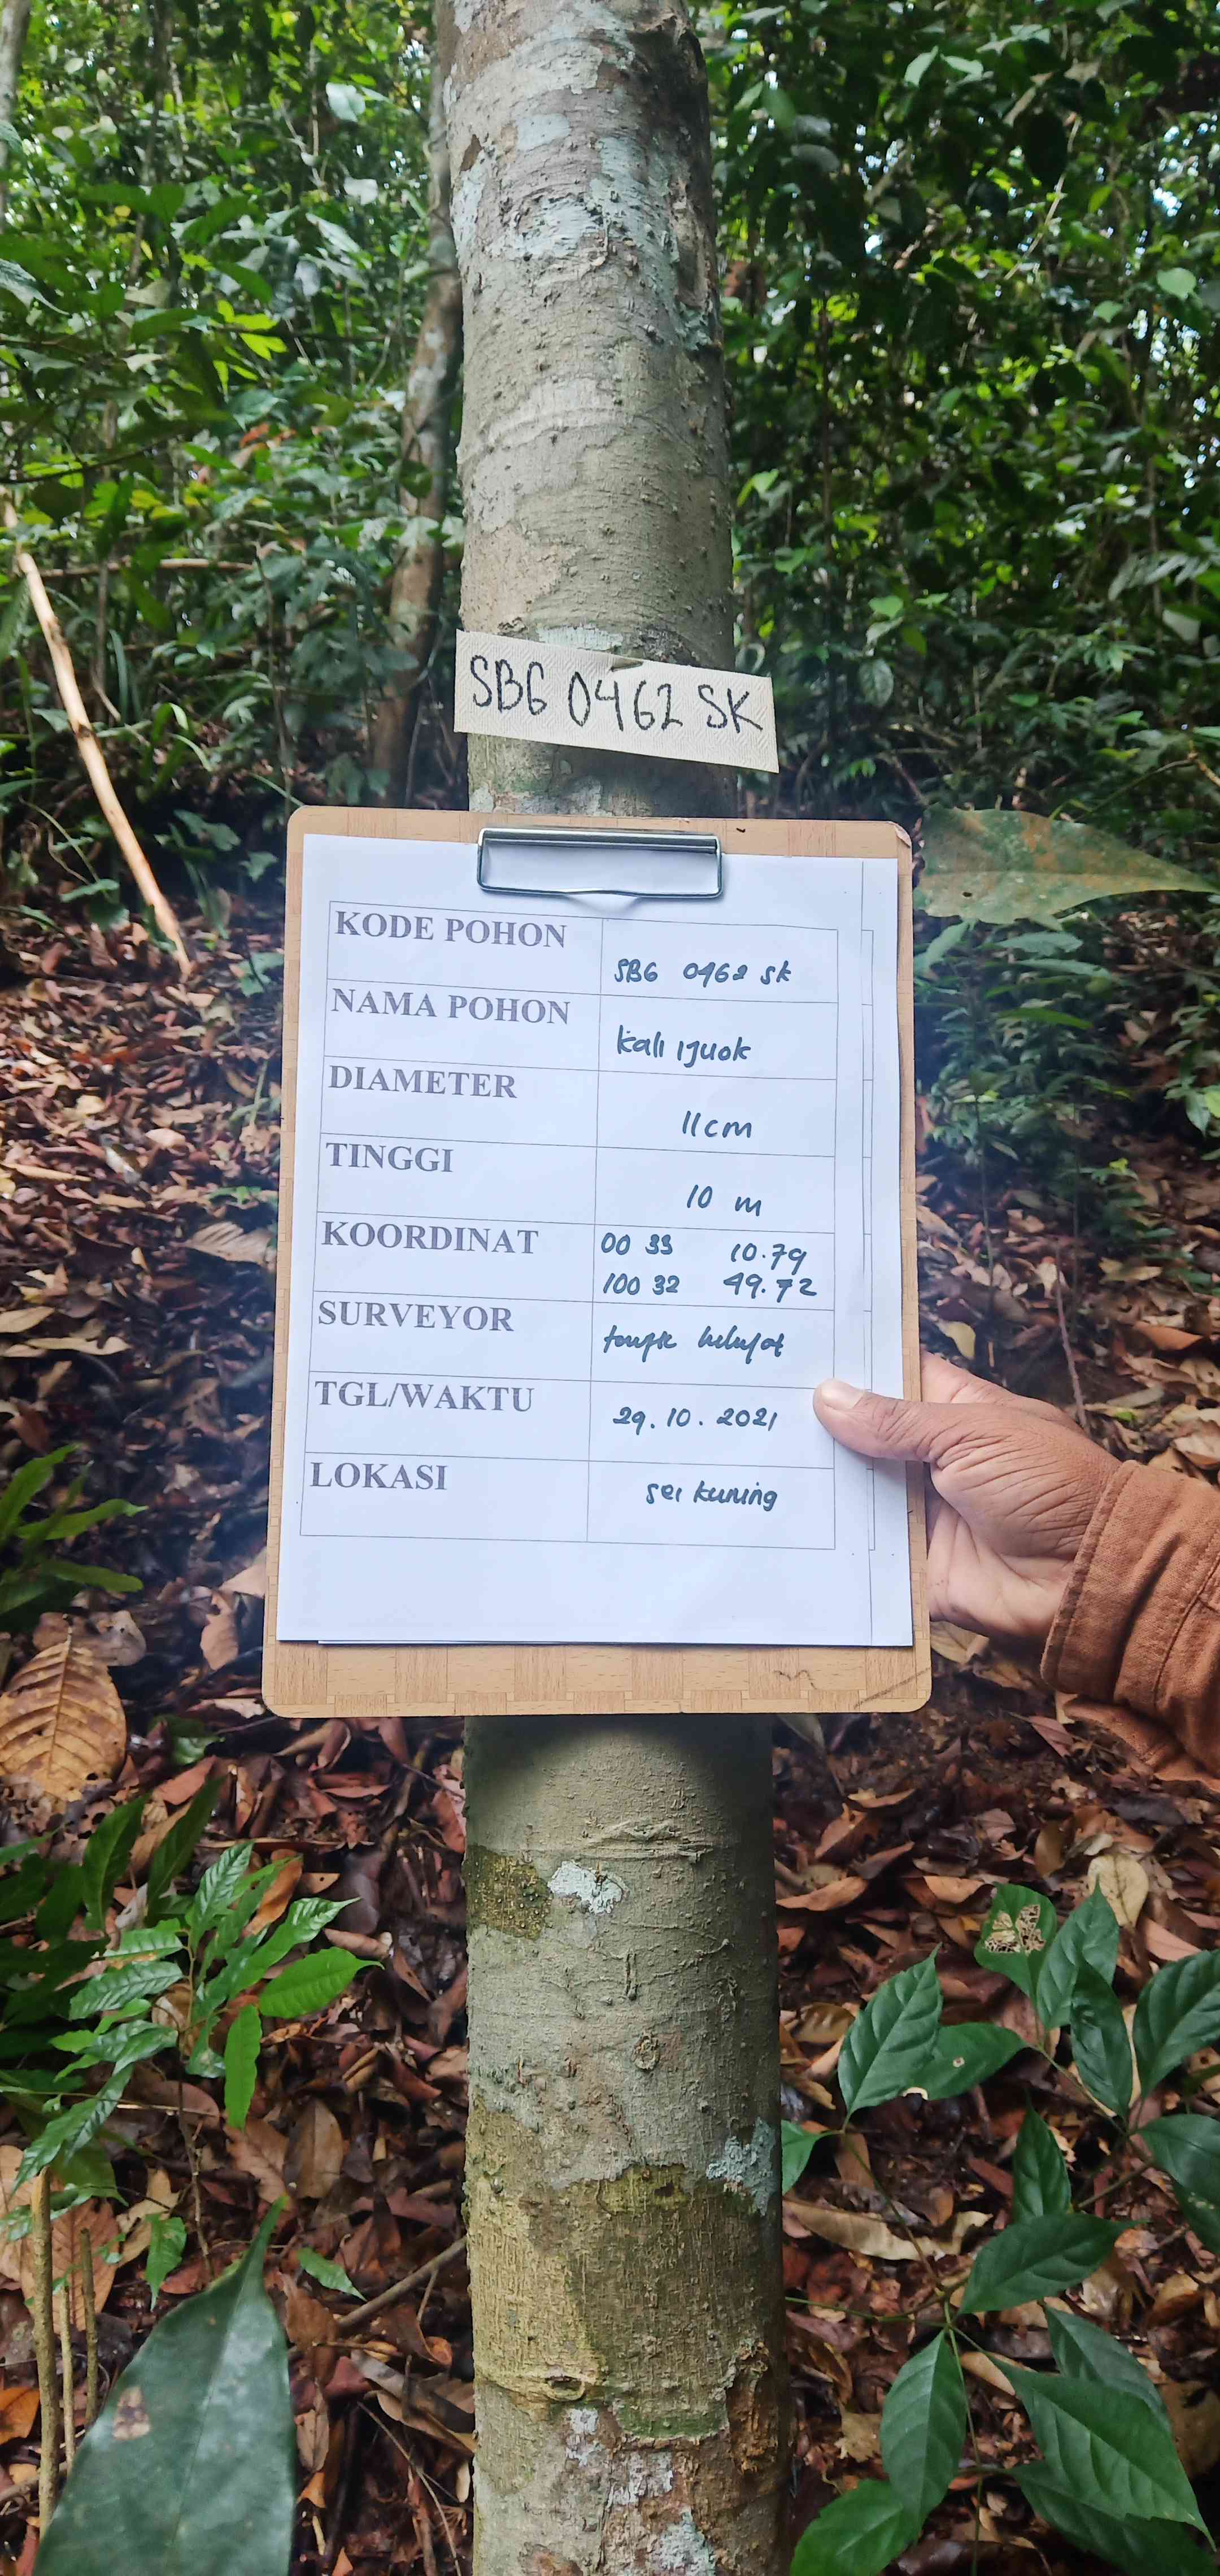 SBG 0462 SK
KODE POHON
SBG 0462 SK
NAMA POHON
kali ijuok
DIAMETER
11 cm
TINGGI
10 m
KOORDINAT
00 33 10.79
100 32 49.72
SURVEYOR
TGL/WAKTU
29.10.2021
LOKASI
sei kuning